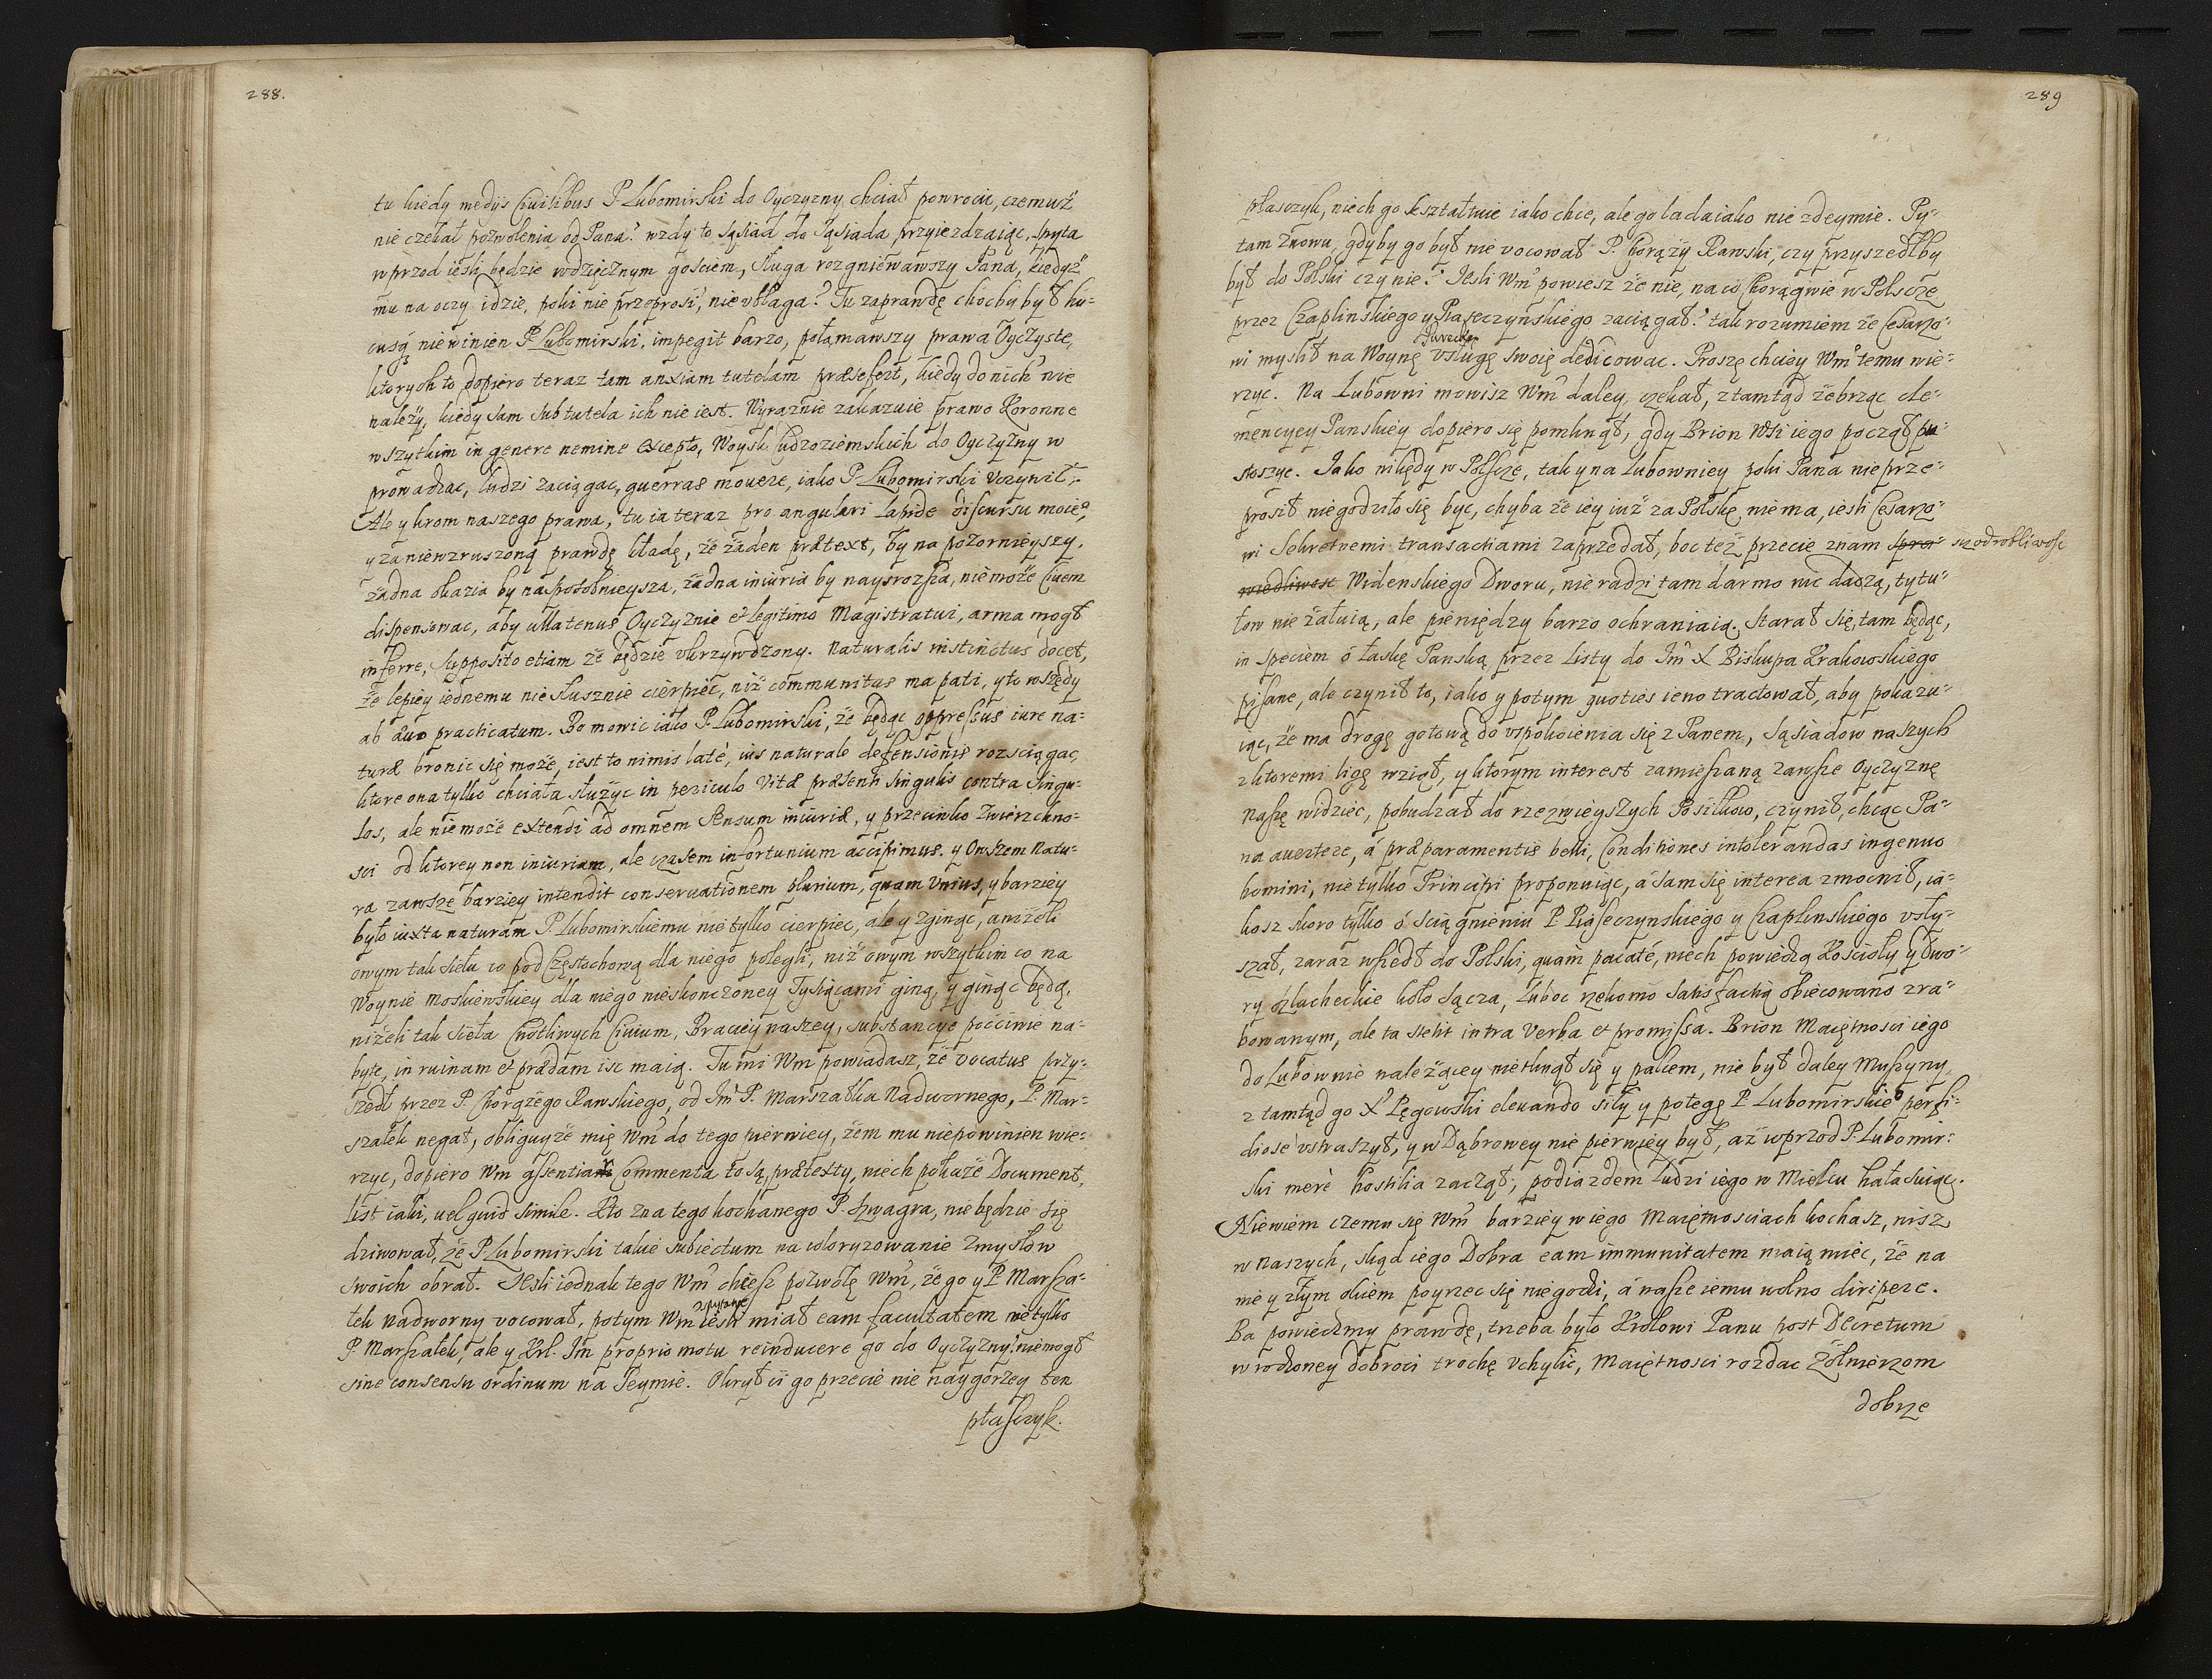 288.
tu kiedy medijs Ciuilibus P. Lubomirski do Oyczyzny chciał powrocic, czemuż
nie czekał pozwolenia od Pana? wzdy to Sąsiad do Sąsiada przyiezdzaiąc, spyta
wprzod iesli będzie wdzięcznym gosciem, Sługa rozgniewawszy Pana, kiedyż
mu na oczy idzie, poki nie przeprosi, nie vbłaga? Tu zaprawdę chocby był hu-
cusq3 niewinien P. Lubomirski, impegit barzo, połamawszy prawa Oyczyste,
ktorych to dopiero teraz tam anxiam tutelam præsefert, kiedy do nich nie
należy, kiedy sam sub tutela ich nie iest. Wyraznie zakazuie prawo Koronne
wszytkim in genere nemine excepto, Woysk Cudzoziemskich do Oyczyzny w
prowadzac, ludzi zaciągac, guerras mouere, iako P. Lubomirski Vczynił.
Ale y krom naszego prawa, tu ia teraz pro angulari Lapide discursu moie°,
y za niewzruszoną prawdę kładę, że żaden prætext, by na pozornieyszy,
żadna okazia by naspo​sobnieysza, żadna iniuria by naysrozsza, nie może Ciuem
dispensowac, aby vllatenus Oyczyznie et legitimo Magistratui, arma mogł
inferre, Supposito etiam że będzie vkrzywdzony. Naturalis instinctus docet,
że lepiey iednemu nie słusznie cierpiec, niż communitas ma pati, y to wszędy
ab æuo practicatum. Bo mowic iako P. Lubomirski, że będąc oppressus iure na-
turæ bronic się może, iest to nimis laté, ius naturale defensionis rozsciągac,
ktore ona tylko chciała służyc in periculo Vitæ præsenti singulis contra singu-
los, ale nie może extendi ad omnem Sensum iniuriæ, y przeciwko Zwierzchno-
sci od ktorey non iniuriam, ale czasem infortunium accipimus. y Owszem Natu-
ra zawsze barziey intendit conseruationem plurium, quam Vnius, y barziey
było iuxta naturam P. Lubomirskiemu nie tylko cierpiec, ale y zginąc, aniżeli
owym tak siełu co pod Częstochową dla niego polegli, niż owym wszytkim co na
Woynie Moskiewskiey dla niego nieskonczoney Tysiącami giną, y ginąc będą,
niżeli tak sieła Cnotliwych Ciuium, Braciey naszey, substancye poćciwie na-
byte, in ruinam et prædam isc maią. Tu mi Wm powiadasz, że vocatus przy-
szedł przez P. Chorązego Rawskiego, od Jm̃ P. Marszałka Nadwornego, P. Mar-
szałek negat, obliguyże mię Wm̃ do tego pierwiey, żem mu nie powinien wie-
rzyc, dopiero Wm assentiar Commenta to są, prætexty, niech pokaże Document,
List iaki, uel quid simile. Kto zna tego kochanego P. Szwagra, nie będzie się
dziwował, że P. Lubomirski takie subiectum na coloryzowanie Zmysłow
swoich obrał. Jesli iednak tego Wm̃ chcesz pozwolę Wm̃, że go y P. Marsza-
łek Nadworny vocował, potym Wm̃ iesli miał eam facultatem nie tylko
P. Marszałek, ale y Krl. Jm̃ proprio motu reinducere go do Oyczyzny? nie mogł
sine consensu ordinum na Seymie. Okrył ci go przecie nie naygorzey ten
płaszczyk.
289
płasczyk, niech go ksztaltuie iako chce, ale go lada iako nie zdeymie. Py-
tam znowu, gdyby go był nie vocował P. Chorąży Rawski, czy przyszedłby
był do Polski czy nie? Jesli Wm̃ powiesz że nie, na co Chorągwie w Polscze
przez Czaplinskiego y Piaseczynskiego zaciągał? tak rozumiem że Cesarzo-
wi myslił na Woynę vsługę swoię dedicowac. Proszę chciey Wm̃ temu wie-
rzyc. Na Lubowni mowisz Wm̃ daley, czekał, z tamtąd żebrząc cle-
mencyey Panskiey dopiero się pomknął, gdy Brion Wsi iego począł pu-
stoszyc. Jako nikędy w Polscze, tak y na Lubowniey poki Pana nie prze-
prosił nie godziło się byc, chyba że iey iuż za Polskę nie ma, iesli Cesarzo-
wi Sekretnemi transactiami zaprzedał, boc też przecie znam spra- szodrobliwosc
wiedliwosc Widenskiego Dworu, nie radzi tam darmo nic dadzą, tytu-
łow nie żałuią, ale pieniędzy barzo ochraniaią. Starał się, tam będąc,
in speciem ó łaskę Panską przez Listy do Jm̃ X Biskupa Krakowskiego
pisane, ale czynił to, iako y potym quoties ieno tractował, aby pokazu-
iąc, że ma drogę gotową do vspokoienia się z Panem, Sąsiadow naszych
z ktoremi ligę wziął, y ktorym interest zamieszaną zawsze Oyczyznę
naszę widziec, pobudzał do rzezwieyszych Posiłkow, czynił, chcąc Pa-
na auertere, á præparamentis belli, Conditiones intolerandas ingenuo
homini, nie tylko Principi proponuiąc, á sam się interea zmocnił, ia-
kosz skoro tylko ó sciągnieniu P. Piaseczynskiego y Czaplinskiego vsły-
szał, zaraz wszedł do Polski, quàm pacaté, niech powiedzą Koscioły y Dwo-
ry szlacheckie koło Sącza, Luboc rzekomo satisfactią obiecowano zra-
bowanym, ale ta stetit intra Verba et promissa. Brion Maiętnosci iego
do Lubownie należącey nie tknął się y palcem, nie był daley Muszyny,
z tamtąd go X Pęgowski eleuando siły y potegę P. Lubomirskie° perfi-
diosé vstraszył, y w Dąbrowey nie pierwiey był, aż wprzod P. Lubomir-
ski meré hostilia zaczął, podiazdem ludzi iego w Mielcu hałasuiąc.
Niewiem czemu się Wm̃ barziey w iego Maiętnosciach kochasz, nisz
w naszych, skąd iego Dobra eam immunitatem maią miec, że na
nie y złym okiem poyrzec się nie godzi, á nasze iemu wolno diripere.
Ba powiedzmy prawdę, trzeba było Krolowi Panu post Decretum
wrodzoney dobroci trochę vchylic, Maiętnosci rozdac Żołnierzom
dobrze